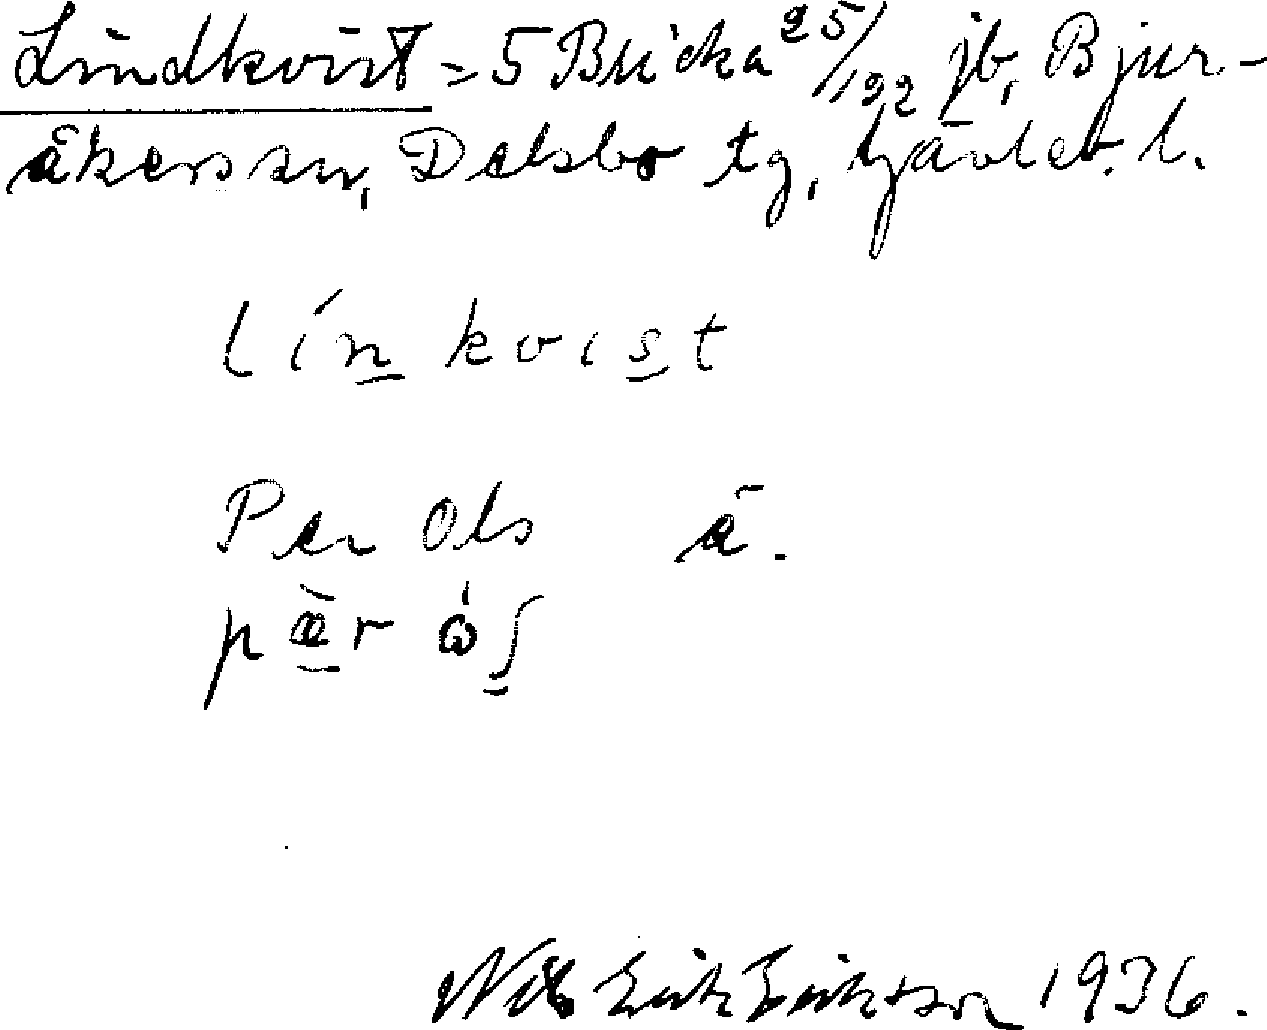 Lindkvist = 5 Bricka 25/122 jb, Bjur-
åkers sn, Delsbo tg, Gävleb. l.
lín kvist
Per Ols ä.
pæ̀r ós
Nils Erik Eriksson 1936.